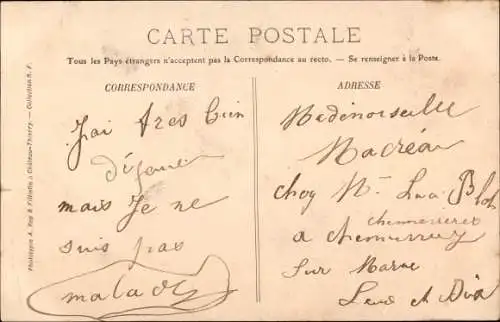 CARTE POSTALE
Tous les Pays étrangers n'acceptent pas la Correspondance au recto. — Se renseigner à la Poste.
CORRESPONDANCE
J'ai tres bien
déjeuné
mais Je ne
suis pas
malade
ADRESSE
Mademoiselle
Macréau
chez Mr
chennevieres
a
sur Marne
Seine et Oise
Phototypie A. Rep & Filliette à Château-Thierry. — Collection R. F.